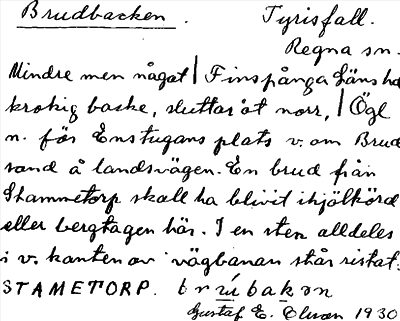 Brudbacken. Tyrisfall.
Regna sn.
Mindre men något | Finspånga Läns hd
krokig backe, sluttar åt norr, | Ögl
n. för Enstugans plats v. om Brud
sand å landsvägen. En brud från
Stammetorp skall ha blivit ihjälkörd
eller bergtagen här. I en sten alldeles
i v. kanten av vägbanan står ristat:
STAMETORP. brúbakən
Gustaf E. Olsson 1930